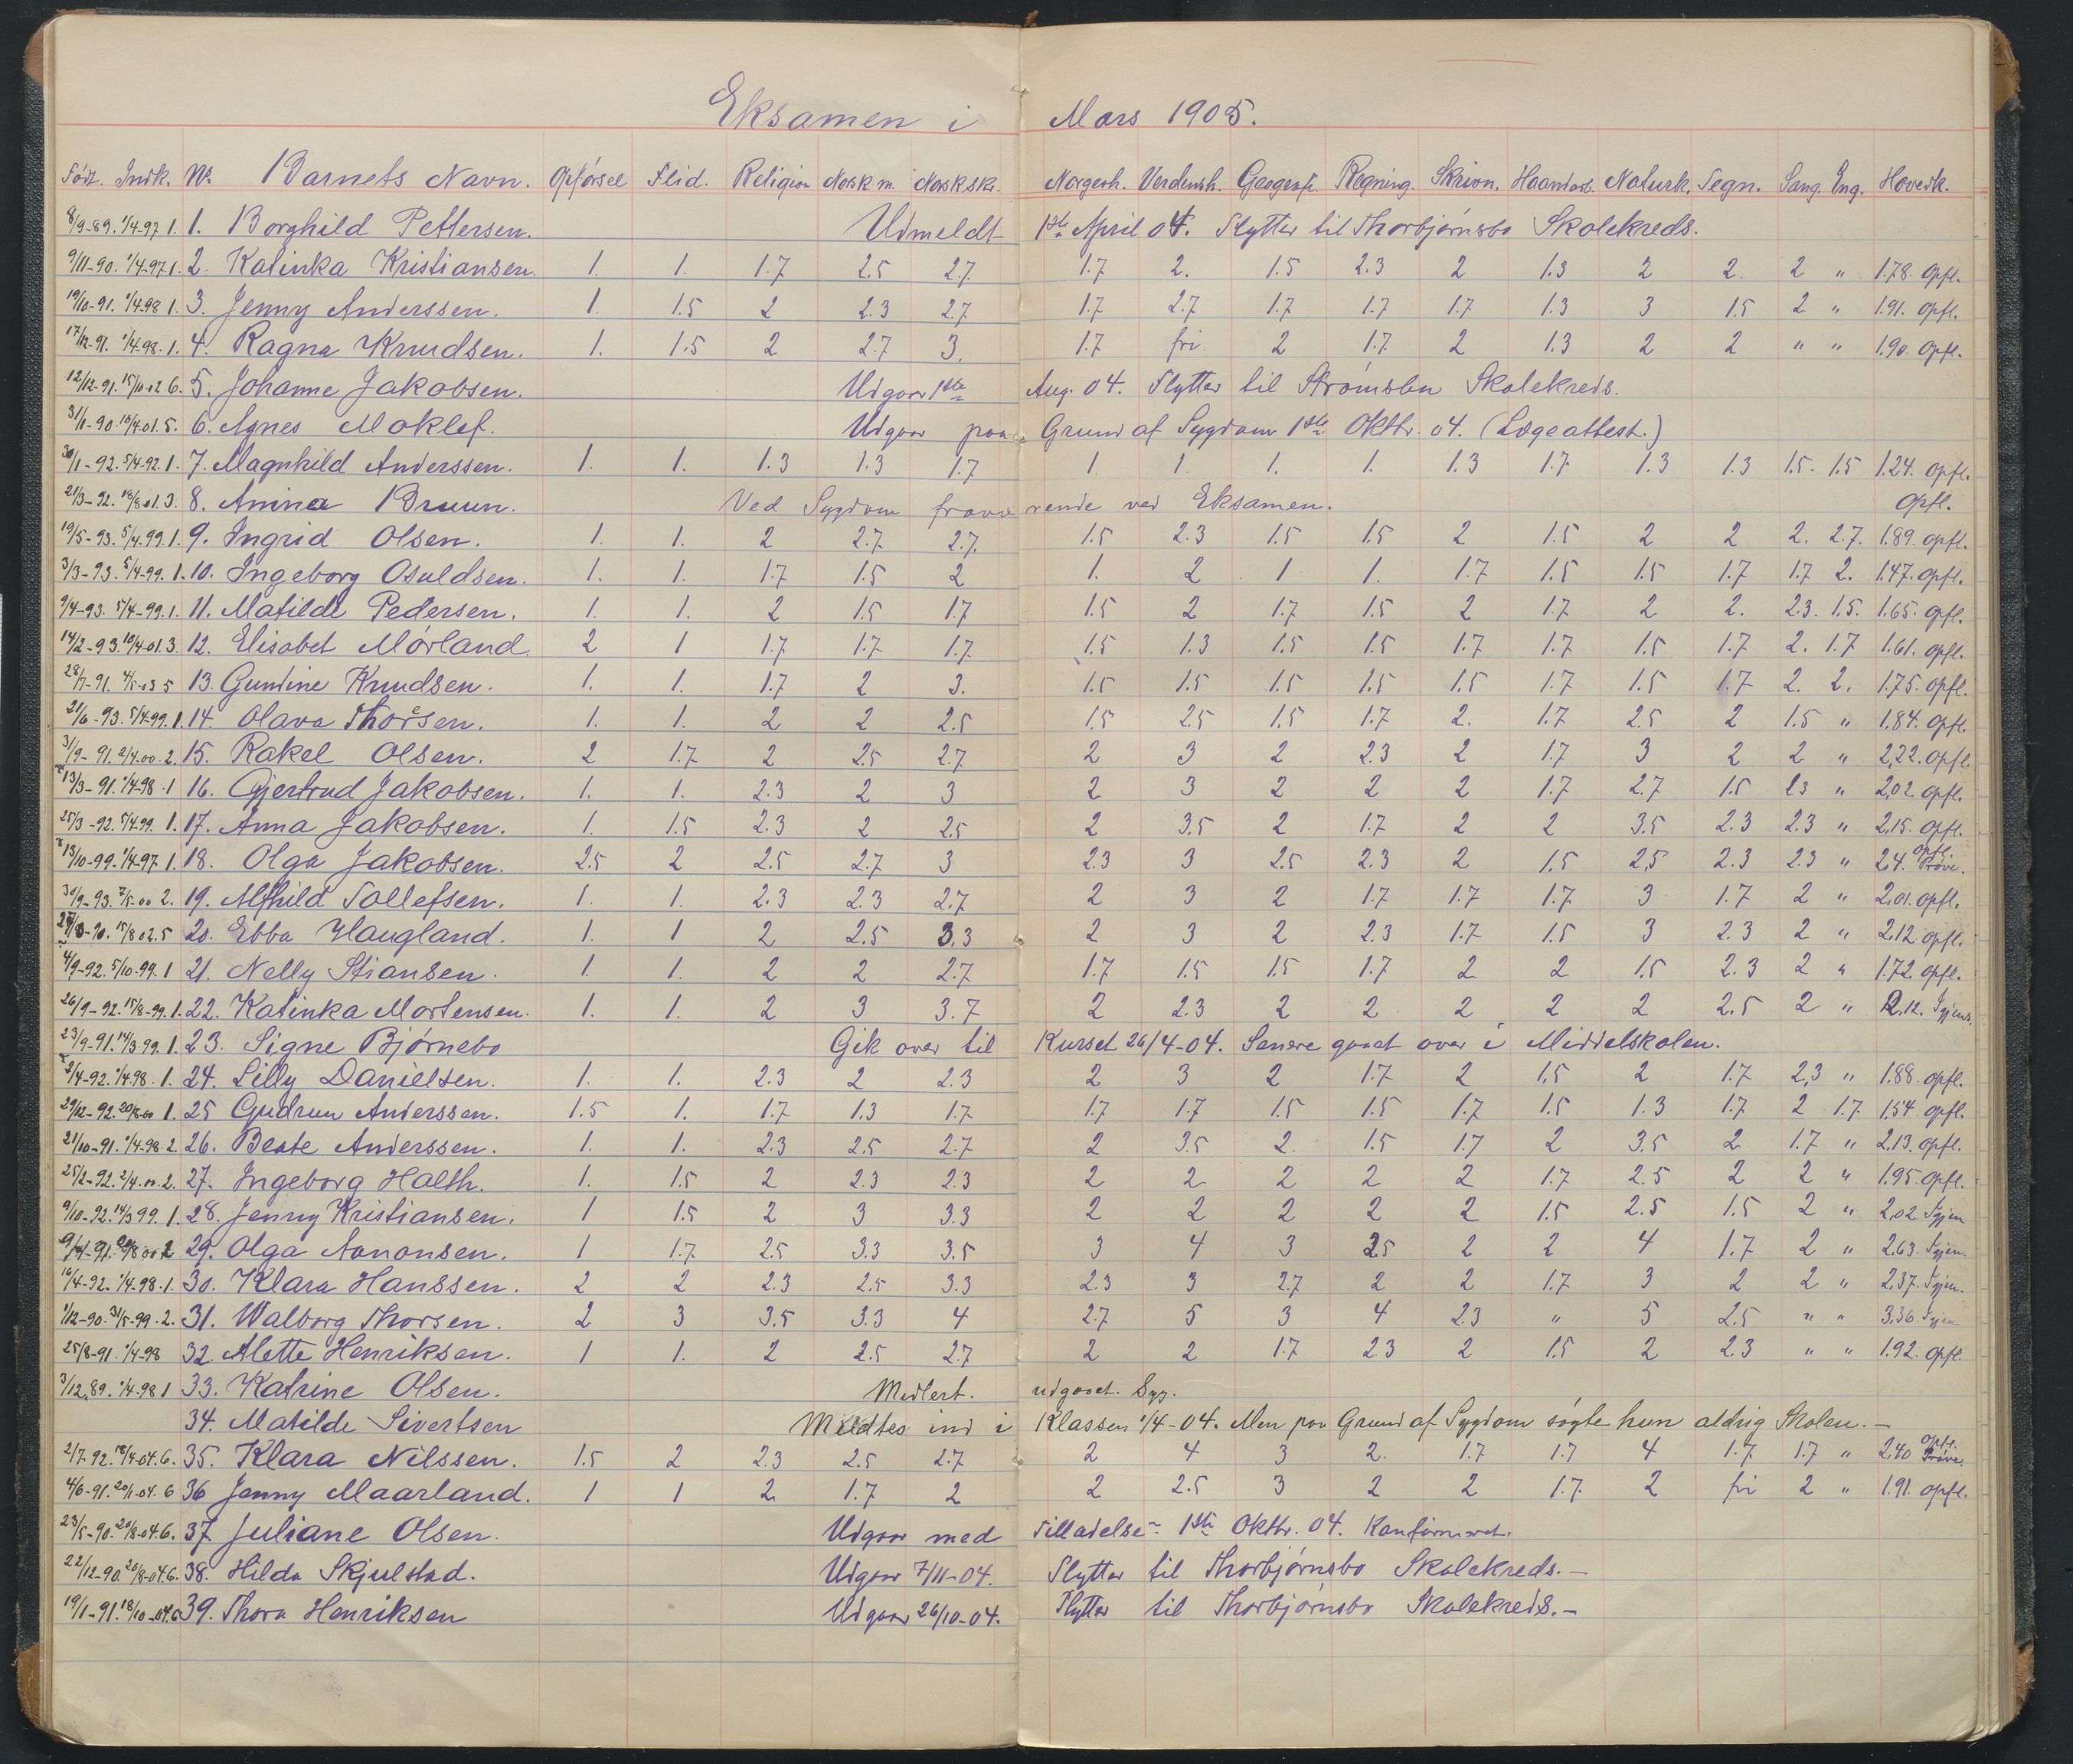 Eksamen i Mars 1905.
Født. Indk. No. Barnets Navn. Opførsel Flid. Religion Norsk m. Norsk skr. Norgesh. Verdensh. Geografi. Regning. Skrivn. Haandarb. Naturk. Tegn. Sang. Eng. Hovedk.
8/9-89. 1/4-97 1. 1. Borghild Pettersen. Udmeldt 1ste April 04. Flytter til Thorbjørnsbo Skolekreds.
9/11-90. 1/4-97.1. 2. Katinka Kristiansen. 1. 1. 1.7 2.5 2.7. 1.7 2. 1.5 2.3 2 1.3 2 2. 2 " 1.78. opfl.
19/10-91. 1/4-98 1. 3. Jenny Anderssen. 1. 1.5 2 2.3 2.7 1.7 2.7 1.7 1.7 1.7 1.3 3 1.5 2 " 1.91. opfl.
17/12-91. 1/4-98. 1. 4. Ragna Knudsen. 1. 1.5 2 2.7 3. 1.7 fri 2 1.7. 2 1.3 2 2 " " 1.90. opfl.
12/12-91. 15/10-02 6. 5. Johanne Jakobsen. Udgaar 1ste Aug. 04. Flytter til Strømsbu Skolekreds.
31/1-90. 10/4-01. 5. 6. Agnes Moklef. Udgaar paa Grund af Sygdom 1ste Oktbr. 04. (Lægeattest.)
30/1-92. 5/4-92. 1. 7. Magnhild Anderssen. 1. 1. 1.3 1.3 1.7 1. 1. 1. 1. 1.3 1.7 1.3 1.3 1.5. 1.5 1.24. opfl.
21/3-92. 18/8-01. 3. 8. Anina Bruun. Ved Sygdom fraværende ved Eksamen. opfl.
19/5-93. 5/4-99. 1. 9. Ingrid Olsen. 1. 1. 2 2.7 2.7. 1.5 2.3 1.5 1.5 2 1.5 2 2 2. 2.7. 1.89. opfl.
3/3-93. 5/4-99. 1. 10. Ingeborg Osuldsen. 1. 1. 1.7 1.5 2 1. 2 1 1. 1.7 1.5 1.5 1.7 1.7 2. 1.47. opfl.
9/4-93. 5/4-99. 1. 11. Matilde Pedersen. 1. 1. 2 1.5 1.7 1.5 2 1.7 1.5 2 1.7 2 2. 2.3. 1.5. 1.65. opfl.
14/2-93. 10/4-01. 3. 12. Elisabet Mørland. 2 1 1.7 1.7 1.7. 1.5 1.3 1.5 1.5 1.7 1.7 1.5 1.7 2. 1.7 1.61. opfl.
28/7-91. 4/5-03 5 13. Gundine Knudsen. 1. 1. 1.7 2 3. 1.5 1.5 1.5 1.5 1.5 1.7 1.5 1.7 2. 2. 1.75. opfl.
21/6-93. 5/4-99. 1. 14. Olava Thorsen. 1. 1. 2 2 2.5 1.5 2.5 1.5 1.7 2. 1.7 2.5 2 1.5 " 1.84. opfl.
3/9-91. 2/4.00. 2. 15. Rakel Olsen. 2 1.7 2 2.5 2.7 2 3 2 2.3 2 1.7 3 2 2 " 2,22. opfl.
13/3-91. 1/4-98. 1 16. Gjertrud Jakobsen. 1. 1. 2.3 2 3 2 3 2 2 2 1.7 2.7 1.5 2.3 " 2,02. opfl.
25/3-92. 5/4.99. 1. 17. Anna Jakobsen. 1. 1.5 2.3 2 2.5 2 3.5 2 1.7 2 2 3.5 2.3 2.3 " 2,15. opfl.
13/10-99. 1/4-97. 1. 18. Olga Jakobsen. 2.5 2 2.5 2.7 3 2.3 3 2.5 2.3 2 1.5 2,5 2.3 2.3 " 2,4. opfl. Prøve.
30/9-93. 7/5.00 2. 19. Alfhild Tollefsen. 1. 1. 2.3 2.3 2.7 2 3 2 1.7 1.7 1.7 3 1.7 2 " 2,01. opfl.
15/8 02. 5 20. Ebba Haugland. 1. 1 2 2.5 3.3 2 3 2 2.3 1.7 1.5 3 2.3 2 " 2,12 opfl.
4/9-92. 5/10-99. 1 21. Nelly Stiansen. 1. 1. 2 2 2.7 1.7 1.5 1.5 1.7 2 2 1.5 2.3 2 " 1.72. opfl.
26/9-92. 15/8-99. 1. 22. Katinka Mortensen. 1. 1. 2 3 3.7 2 2.3 2 2 2 2 2 2.5 2 " 2,12. Igjen.
23/9-91. 14/3 99. 1. 23. Signe Bjørnebo Gik over til Kurset 26/4-04. Senere gaaet over i Middelskolen.
2/4-92. 1/4-98. 1. 24. Lilly Danielsen. 1. 1. 2.3 2 2.3 2 3 2 1.7 2 1.5 2 1.7 2,3 " 1.88. opfl.
29/12-92. 20/8-00 1. 25 Gudrun Anderssen. 1.5 1. 1.7 1.3 1.7 1.7 1.7 1.5 1.5 1.7 1.5 1.3 1.7 2 1.7 1,54 opfl.
21/10-91. 1/4-98. 2. 26. Beate Anderssen. 1. 1. 2.3 2.5 2.7 2 3.5 2. 1.5 1.7 2 3.5 2 1.7 " 2,13. opfl.
25/2-92. 2/4.00. 2. 27. Ingeborg Halth. 1. 1.5 2 2.3 2.3 2 2 2 2 2 1.7 2.5 2 2 " 1.95. opfl.
9/10-92. 14/3 99. 1. 28. Jenny Kristiansen. 1 1.5 2 3 3.3 2 2 2 2 2 1.5 2.5 1.5 2 " 2,02 Igjen
29. Olga Aanonsen. 1 1.7 2.5 3.3 3.5 3 4 3 2.5 2 2 4 1.7 2 " 2,63. Igjen.
16/4-92. 1/4-98. 1. 30. Klara Hanssen. 2 2 2.3 2.5 3.3 2.3 3 2.7 2 2 1.7 3 2 2 " 2,37. Igjen.
1/12-90. 31/5-99. 2. 31. Walborg Thorsen. 2 3 3.5 3.3 4 2.7 5 3 4 2.3 " 5 2.5 " " 3,36. Igjen
25/8-91. 1/4-98 32. Alette Henriksen. 1 1. 2 2.5 2.7 2 2 1.7 2.3 2 1.5 2 2.3 " " 1.92. opfl.
3/12.89. 1/4-98 1 33. Katrine Olsen. Midlert. udgaaet. Syg.
34. Matilde Sivertsen Meldtes ind i Klassen 1/4-04. Men paa Grund af Sygdom søgte hun aldrig Skolen. —
2/7-92. 18/4-04. 6. 35. Klara Nilssen. 1.5 2 2.3 2.5 2.7 2 4 3 2. 1.7 1.7 4 1.7 1.7 " 2,40 opfl. Prøve.
4/6-91. 20/1-04. 6 36 Jenny Maarland. 1 1 2 1.7 2 2 2.5 3 2 2 1.7. 2 fri 2 " 1.91. opfl.
23/5-90. 20/8-04. 6. 37. Juliane Olsen. Udgaar med Tilladelse 1ste Oktbr. 04. Konfirmeret.
22/12-90. 20/8-04. 6. 38. Hilda Skjulstad. Udgaar 7/11-04. Flytter til Thorbjørnsbo Skolekreds. —
19/1-91. 18/10-04. 6 39. Thora Henriksen Udgaar 26/10-04. Flytter til Thorbjørnsbo Skolekreds. —